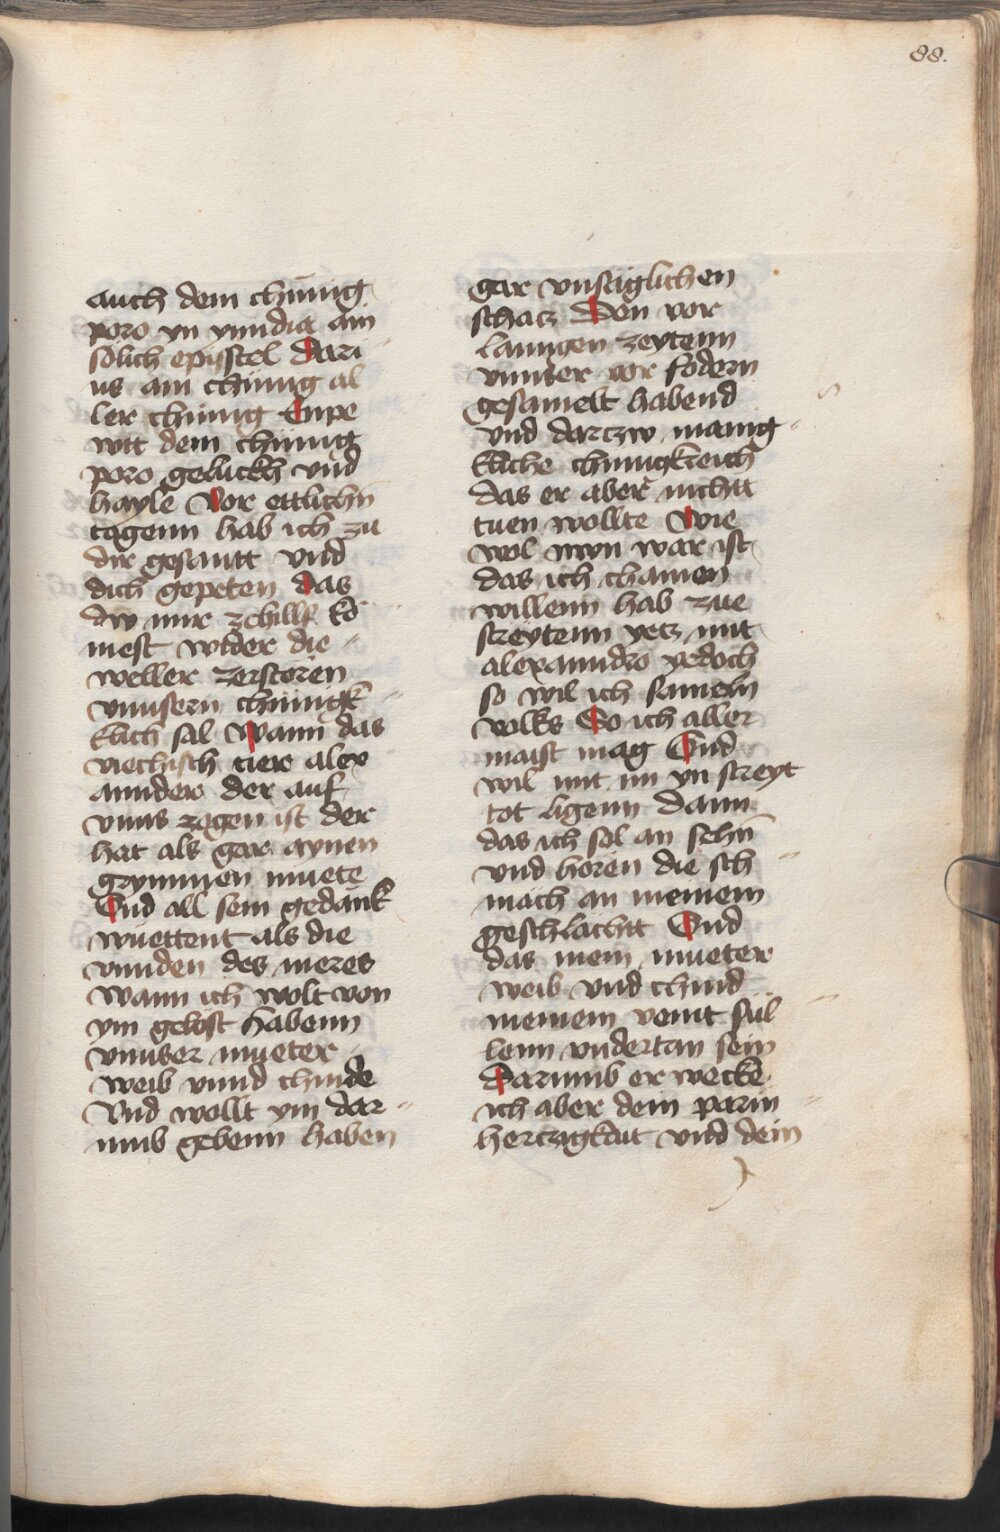 88.
auch dem chünig
poro yn yindia ain
solich episstel Dari
us ain chünig al
ler chünig Enpe
wtt dem chünig
poro gelückh vnd
hayle Vor ettlichn
tagenn hab ich zu
dir gesantt vnd
dich gepeten das
dw mir zehillf ko
mest wider die
weller zerstoren
vnnsern chünigk
klich sal Wann das
viechisch tier alex
annder der auf
vnns zogen ist der
hat als gar aynen
grymmen muete
Vnd all sein gedänk
wüettent als die
vnnden des meres
Wann ich wolt von
ym gelost habenn
vnnser mueter
weib vnnd chinde
Vnd wollt ym dar
umb gebenn haben
gar vnsäglichen
schacz Den vor
lanngen zeytenn
vnnser vor fodern
gesamelt habend
vnd darczw manig
kliche chünigkreich
das er aber nichtt
tuen wollte Wie
wol nwn war ist
das ich chainen
willenn hab zue
streytenn yetz mit
alexanndro yedoch
so wil ich sameln
volks So ich aller
maist mag Vnd
wil mit im yn streyt
tot ligenn dann
das ich sol an sehn
vnd horen die sch
mach an meinem
geschlächtt Vnd
das mein mueter
weib vnd chind
meinem veint sül
lenn vndertan sein
Darumb er wecke
ich aber dein parm
herczigkait vnd dein